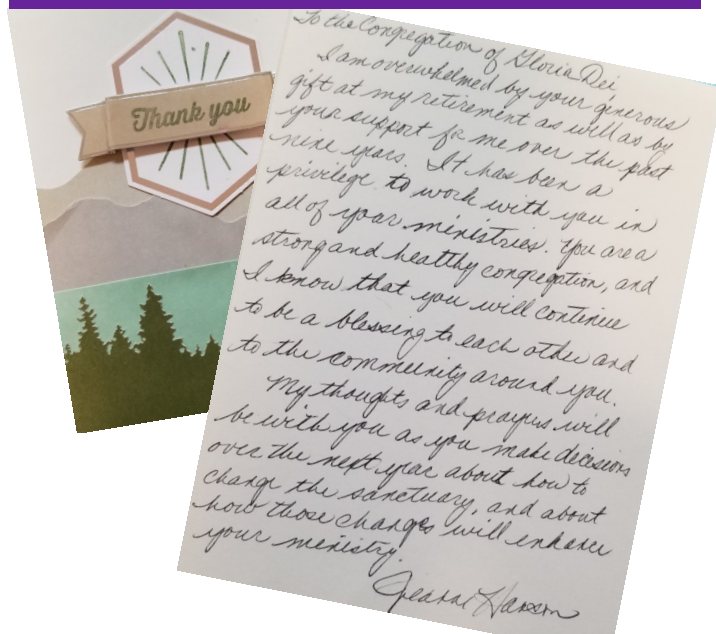 Thank you
To the Congregation of Gloria Dei,
I am overwhelmed by your generous
gift at my retirement as well as by
your support for me over the past
nine years. It has been a
privilege to work with you in
all of your ministries. You are a
strong and healthy congregation, and
I know that you will continue
to be a blessing to each other and
to the community around you.
My thoughts and prayers will
be with you as you make decisions
over the next year about how to
change the sanctuary, and about
how those changes will enhance
your ministry.
Jeanne Hanson